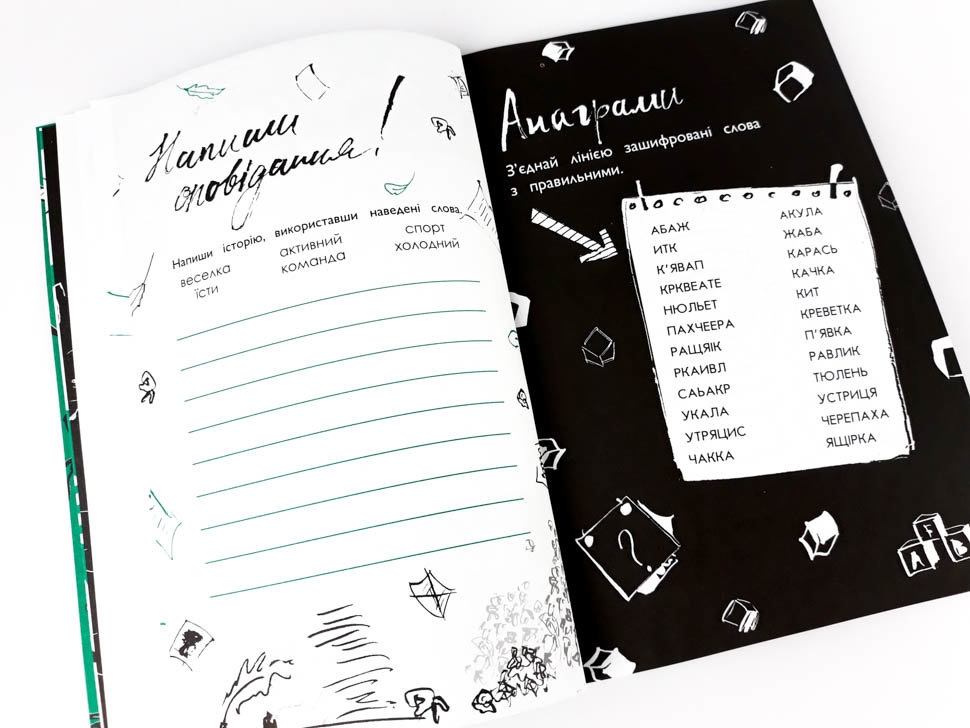 Напиши
оповідання!
Напиши історію, використавши наведені слова.
веселка активний спорт
їсти команда холодний
Анаграми
З'єднай лінією зашифровані слова
з правильними.
АБАЖ
ИТК
К'ЯВАП
КРКВЕАТЕ
НЮЛЬЕТ
ПАХЧЕЕРА
РАЩЯІК
РКАИВЛ
САЬАКР
УКАЛА
УТРЯЦИС
ЧАККА
АКУЛА
ЖАБА
КАРАСЬ
КАЧКА
КИТ
КРЕВЕТКА
П'ЯВКА
РАВЛИК
ТЮЛЕНЬ
УСТРИЦЯ
ЧЕРЕПАХА
ЯЩІРКА
?
F
A B